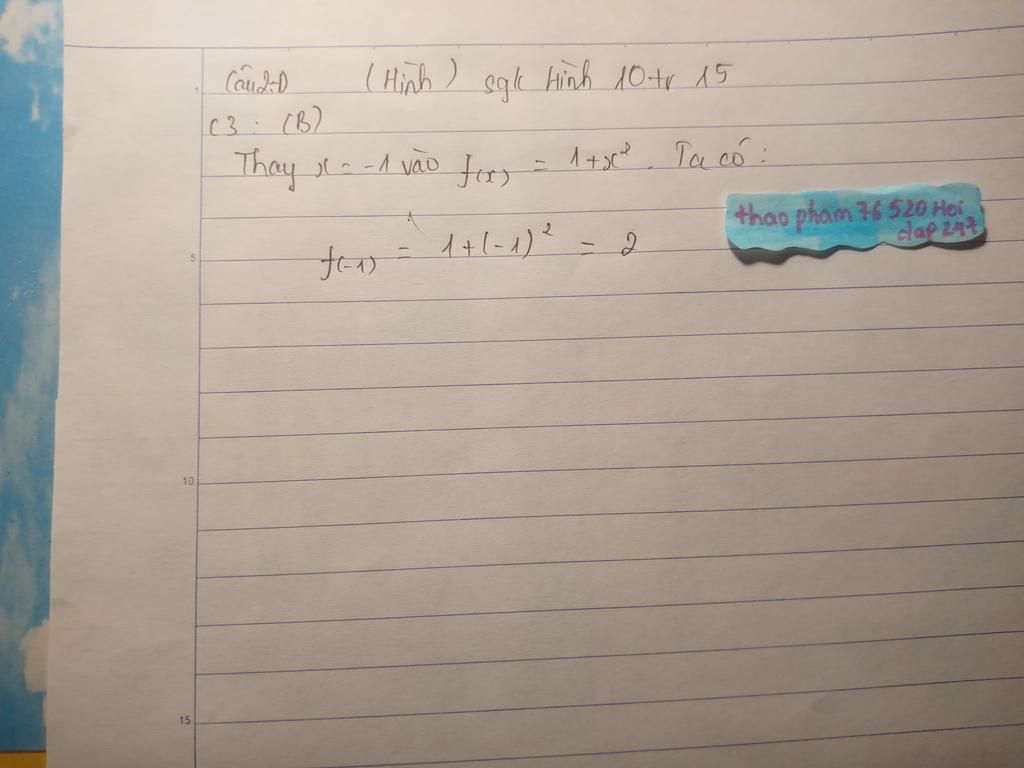 Câu2:D (Hình) sgk Hình 10 tr 15
C3: (B)
Thay x = -1 vào f(x) = 1+x². Ta có:
f(-1) = 1+(-1)² = 2
thao pham 76 520 Hoi
dap 247
1
5
10
15